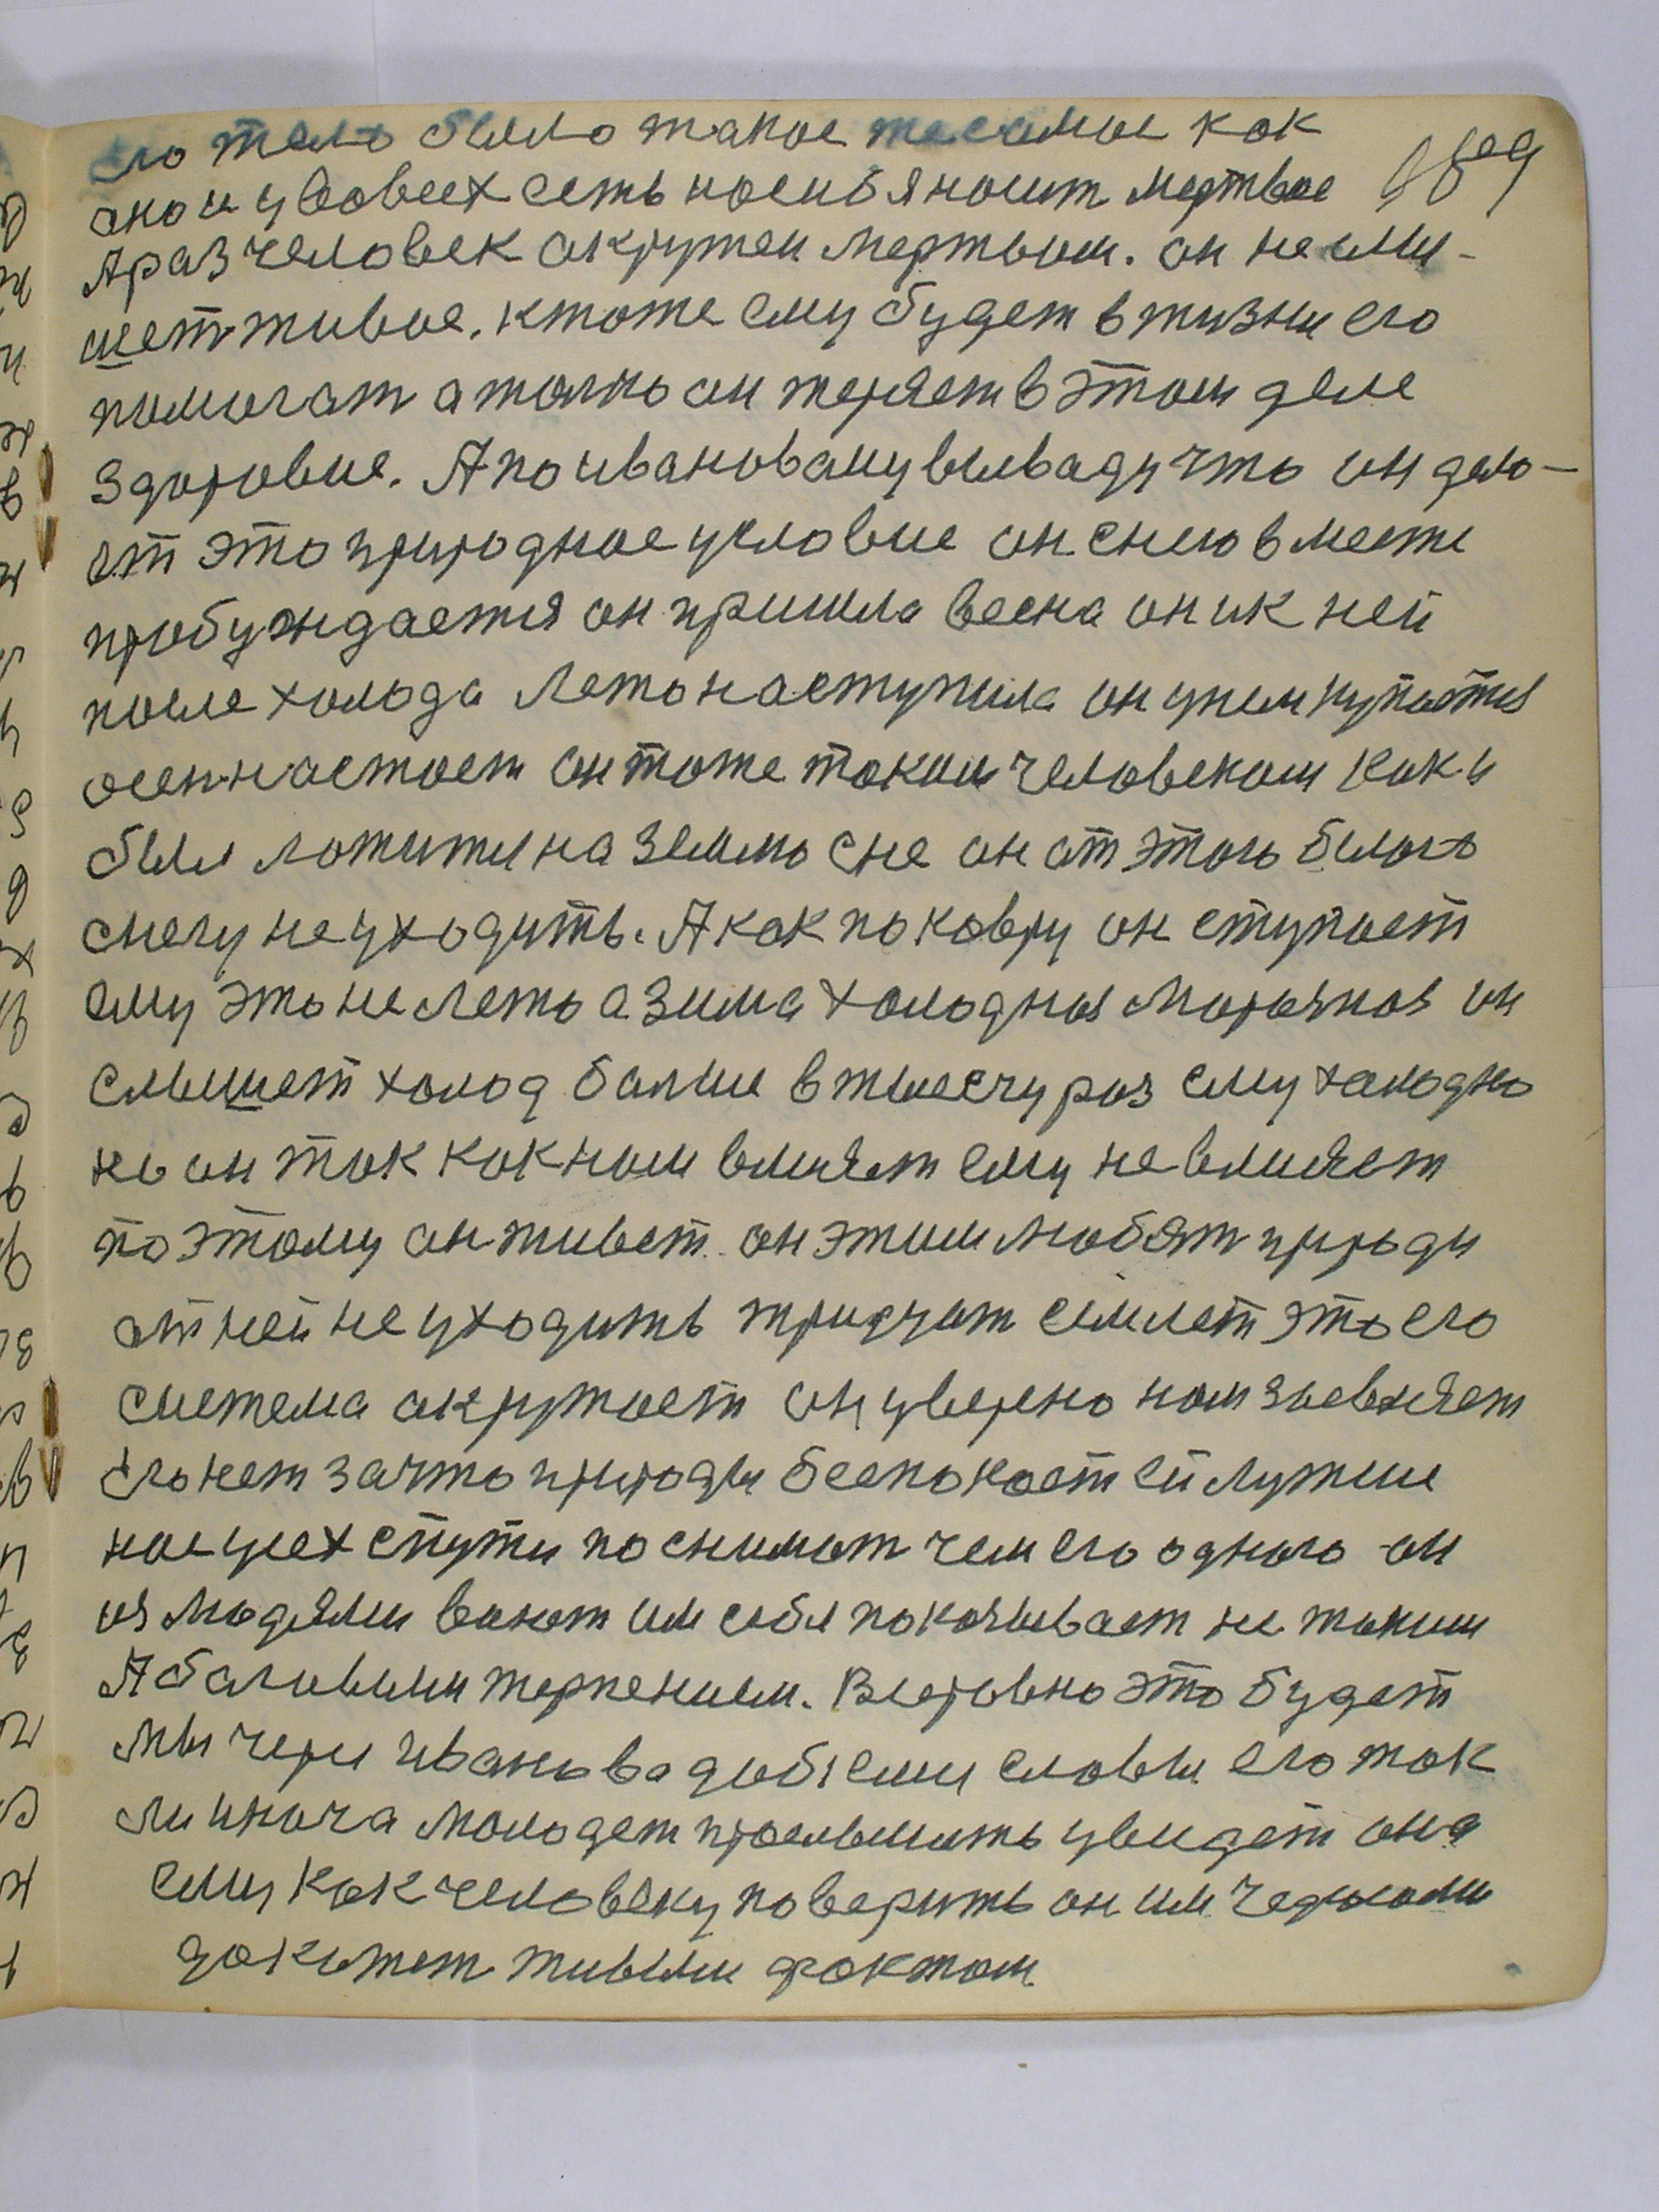 его тело было такое тесамое как
оно и увовсех есть носибя носит мертвое
А раз человек окружен мертвым. он не слы-
шет живое. ктоже ему будет в жизни его
помогат а толко он теряет в этом деле
здоровие. А по ивановаму вывади что он дело-
ет это природное условие он снею вместе
пробуждается он пришла весна он ик ней
после холода Лето наступила он унем купается
осен настает он тоже таким человеком как и
был ложится на землю сне он от этого белого
снегу не уходить. А как по ковру он ступает
ему это не лето а зима холодная Морозная он
слышет холод болше в тысечу раз ему халодно
но он так как нам влияет ему невлияет
по этому он живет. он этим любят природу
от ней не уходить тридцат семлет это его
система окружает он уверено нам заевляет
его нет зачто природы беспокоет ей лутше
нас усех спути поснимат чем его одного он
из людями воюет им себя показывает не таким
А боливым терпением. Всеровно это будет
Мы через Иванова добьемся славы его так
ли иноча молодет прослышить увидет она
ему как человеку поверить он им чедесами
докажет живым фактом